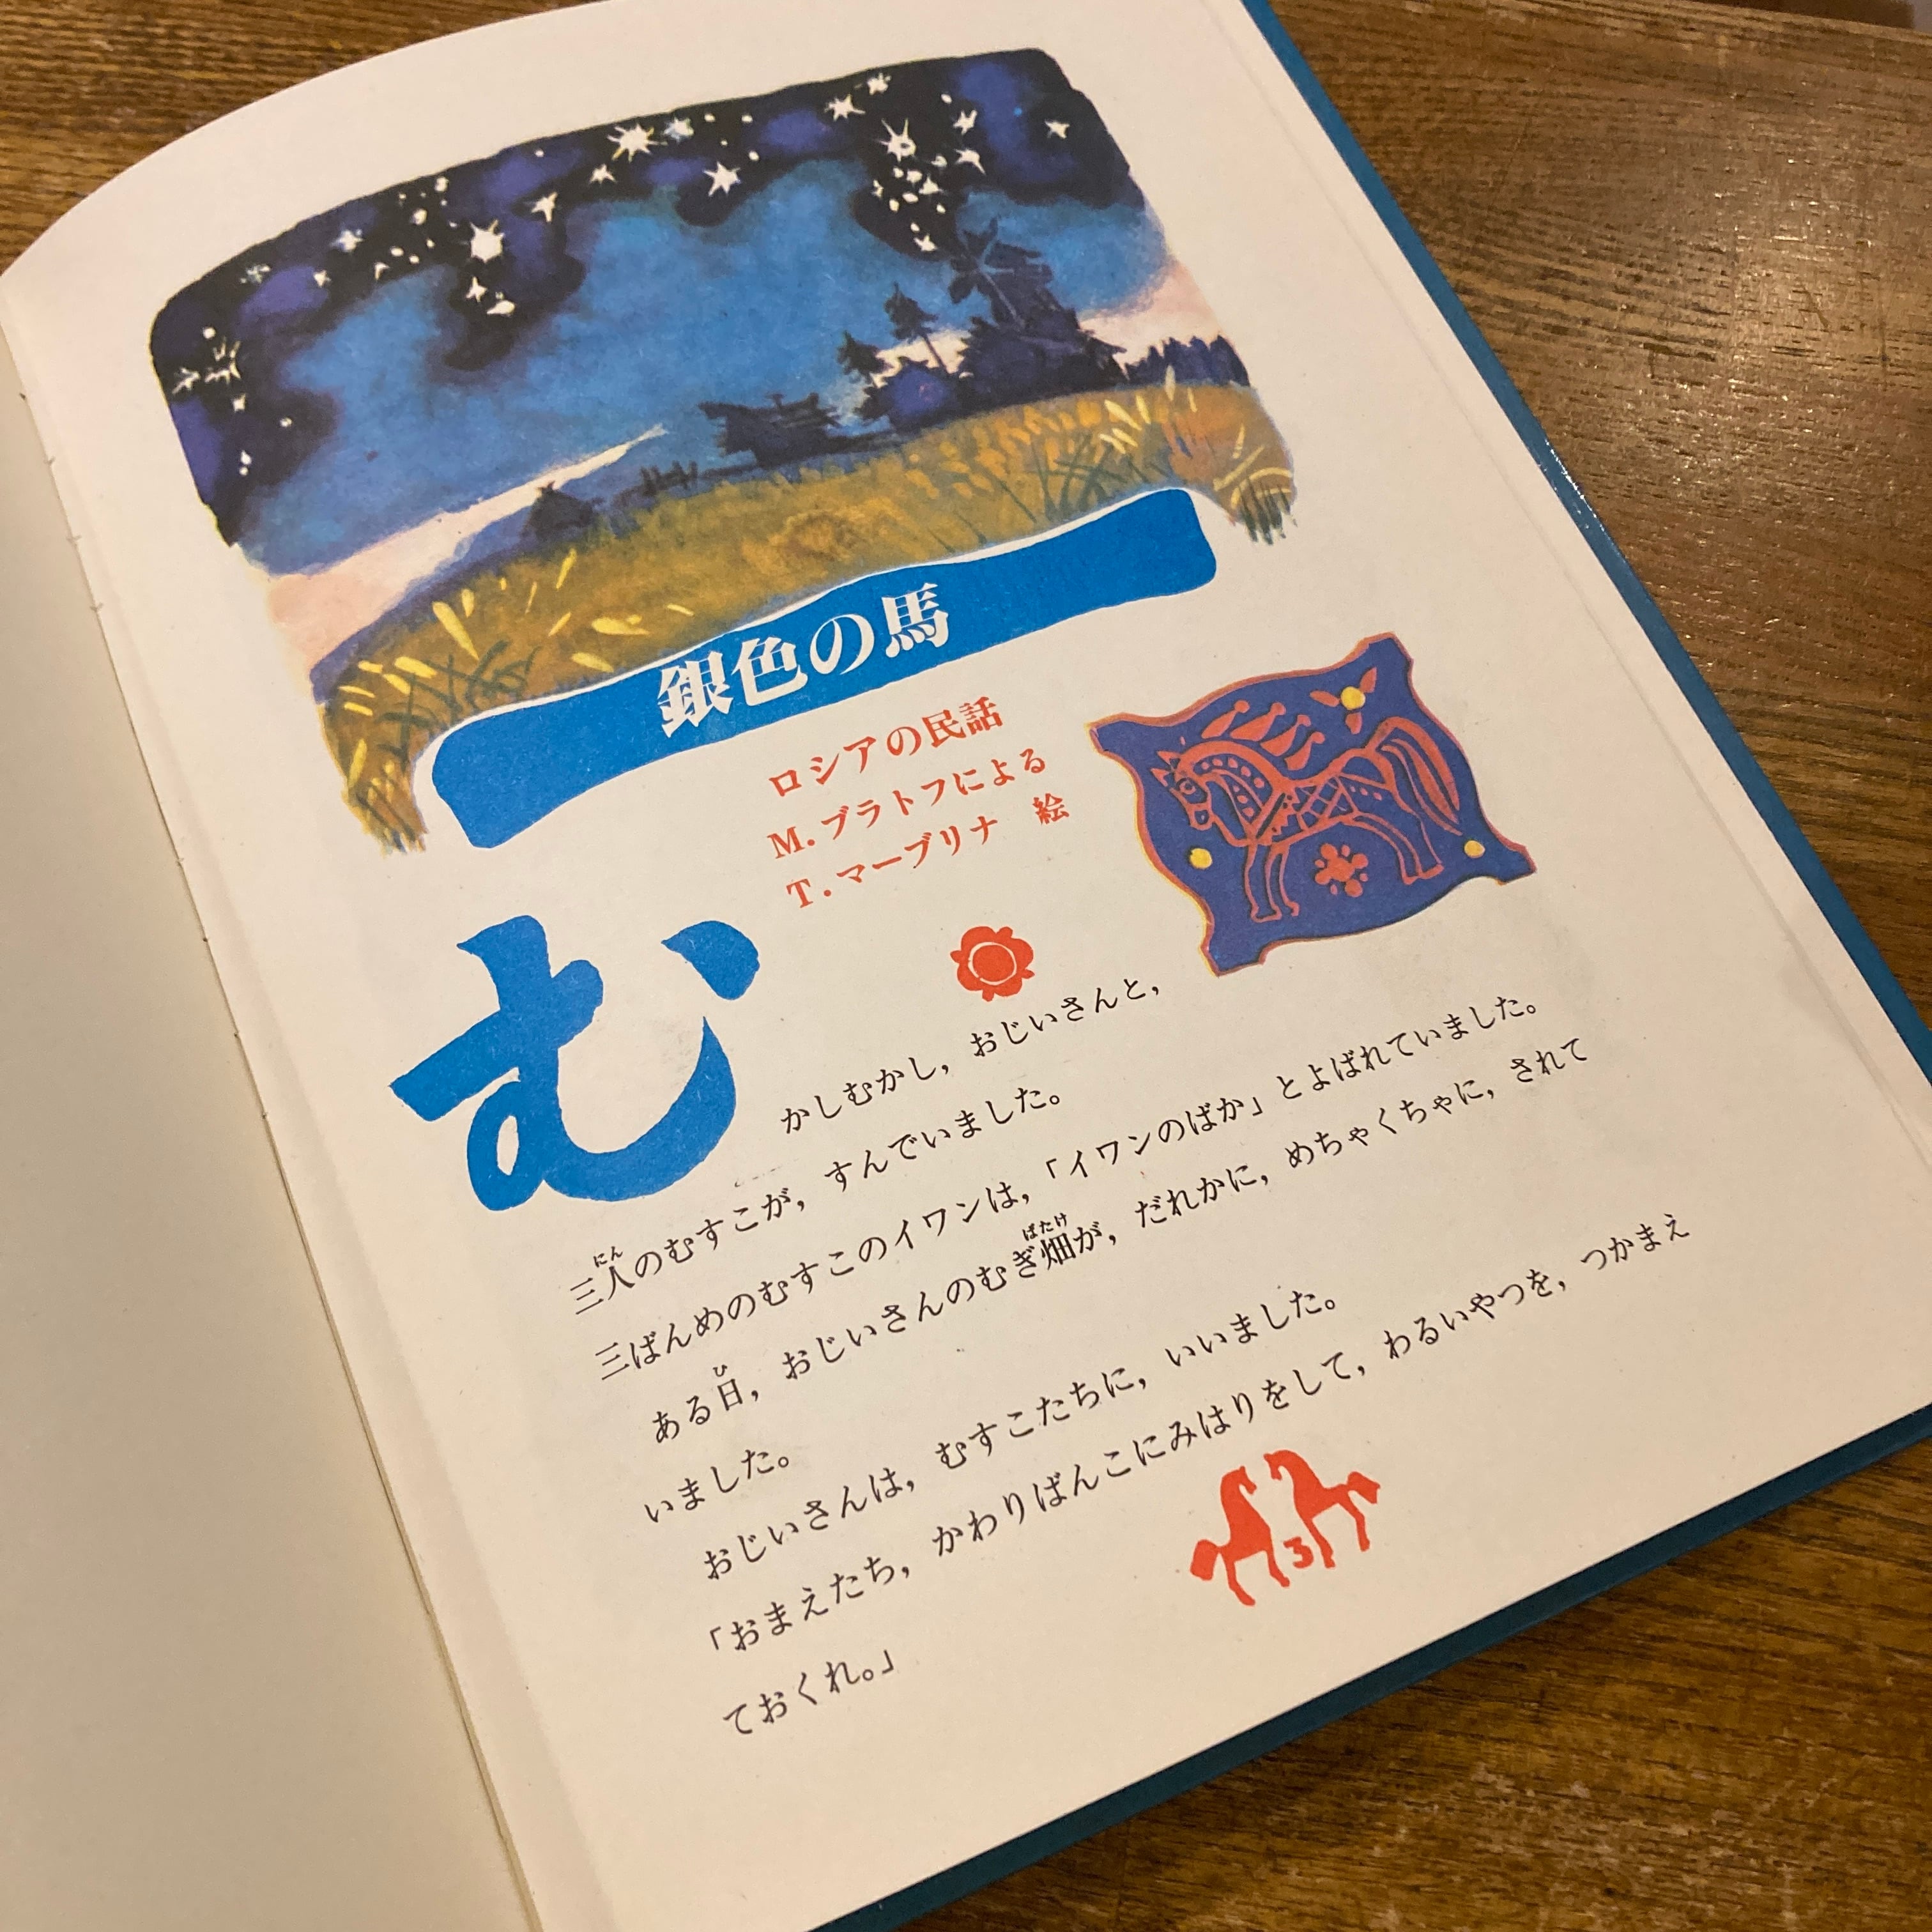 銀色の馬
ロシアの民話
M.ブラトフによる
T.マーブリナ 絵
むかしむかし，おじいさんと，
三人のむすこが，すんでいました。
三ばんめのむすこのイワンは，「イワンのばか」とよばれていました。
ある日，おじいさんのむぎ畑が，だれかに，めちゃくちゃに，されて
いました。
おじいさんは，むすこたちに，いいました。
「おまえたち，かわりばんこにみはりをして，わるいやつを，つかまえ
ておくれ。」
3